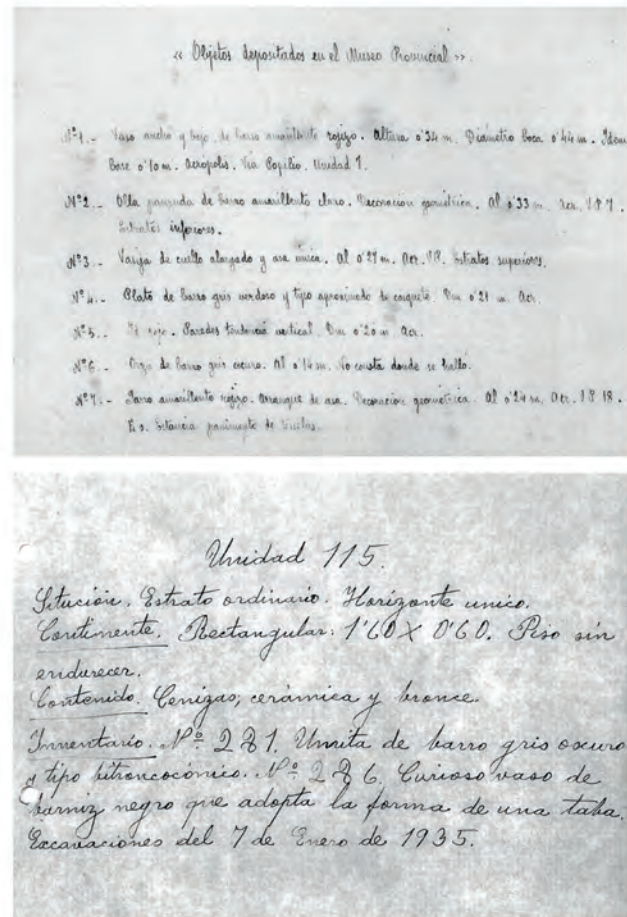 « Objetos depositados en el Museo Provincial ».
Nº 1.- Vaso ancho y bajo de barro amarillento rojizo. Altura 0'34 m. Diámetro boca 0'44 m. Idem
Base 0'10 m. Acropolis. Via Popilio. Unidad 1.
Nº 2.- Olla panzuda de barro amarillento claro. Decoracion geométrica. Al 0'33 m. Acr.
Estratos inferiores.
Nº 3.- Vasija de cuello alargado y asa única. Al 0'27 m. Acr. Estratos superiores.
Nº 4.- Plato de barro gris verdoso y tipo aproximado de casquete. Dm 0'21 m. Acr.
Nº 5.- Id rojo. Paredes tendencia vertical. Dm 0'20 m. Acr.
Nº 6.- Orza de barro gris oscuro. Al 0'14 m. No consta donde se halló.
Nº 7.- Jarro amarillento rojizo. Arranque de asa. Decoracion geométrica. Al 0'24 m. Acr.
Estancia
Unidad 115.
Situción. Estrato ordinario. Horizonte unico.
Continente. Rectangular: 1'60 X 0'60. Piso sin
endurecer.
Contenido. Cenizas, cerámica y bronce.
Inventario. Nº 281. Urnita de barro gris oscuro
y tipo bitroncocónico. Nº 286. Curioso vaso de
barniz negro que adopta la forma de una taba.
Excavaciones del 7 de Enero de 1935.